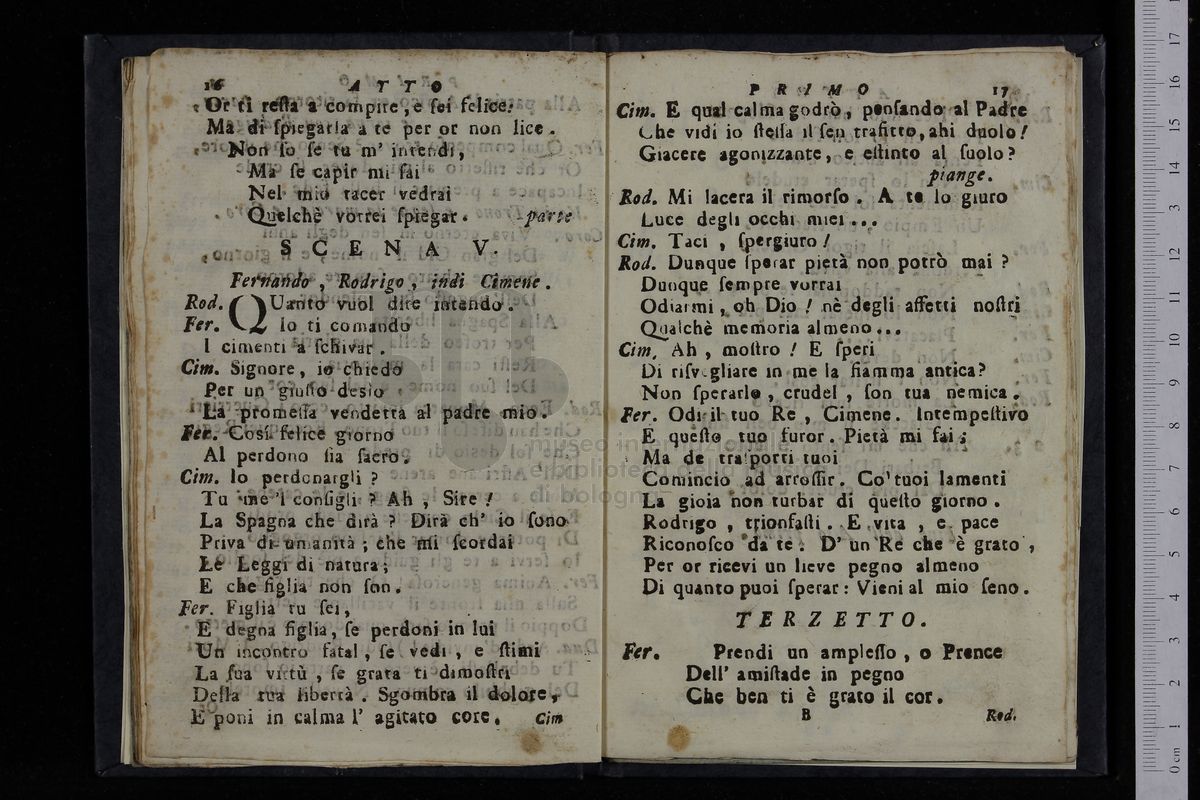 16 ATTO
Or ti reſta a compire, e ſei felice.
Ma di ſpiegarla a te per or non lice.
Non ſo ſe tu m' intendi,
Ma ſe capir mi ſai
Nel mio tacer vedrai
Quelchè vorrei ſpiegar. parte
SCENA V.
Fernando, Rodrigo, indi Cimene.
Rod. QUanto vuol dire intendo.
Fer. Io ti comando
I cimenti a ſchivar.
Cim. Signore, io chiedo
Per un giuſto desìo
La promeſſa vendetta al padre mio.
Fer. Così felice giorno
Al perdono ſia ſacro.
Cim. Io perdonargli?
Tu me 'l conſigli? Ah, Sire!
La Spagna che dirà? Dirà ch' io ſono
Priva di umanità; che mi ſcordai
Le Leggi di natura;
E che figlia non ſon.
Fer. Figlia tu ſei,
E degna figlia, ſe perdoni in lui
Un incontro fatal, ſe vedi, e ſtimi
La ſua virtù, ſe grata ti dimoſtri
Della tua libertà. Sgombra il dolore,
E poni in calma l' agitato core. Cim
PRIMO 17
Cim. E qual calma godrò, penſando al Padre
Che vidi io ſteſſa il ſen trafitto, ahi duolo!
Giacere agonizzante, e eſtinto al ſuolo?
piange.
Rod. Mi lacera il rimorſo. A te lo giuro
Luce degli occhi miei...
Cim. Taci, ſpergiuro!
Rod. Dunque ſperar pietà non potrò mai?
Dunque ſempre vorrai
Odiarmi, oh Dio! nè degli affetti noſtri
Qualchè memoria almeno...
Cim. Ah, moſtro! E ſperi
Di riſvegliare in me la fiamma antica?
Non ſperarlo, crudel, ſon tua nemica.
Fer. Odi il tuo Re, Cimene. Intempeſtivo
E queſto tuo furor. Pietà mi fai;
Ma de traſporti tuoi
Comincio ad arroſſir. Co' tuoi lamenti
La gioia non turbar di queſto giorno.
Rodrigo, trionfaſti. E vita, e pace
Riconoſco da te: D' un Re che è grato,
Per or ricevi un lieve pegno almeno
Di quanto puoi ſperar: Vieni al mio ſeno.
TERZETTO.
Fer. Prendi un ampleſſo, o Prence
Dell' amiſtade in pegno
Che ben ti è grato il cor.
B Rod.
museo internazionale
e biblioteca della musica
di bologna